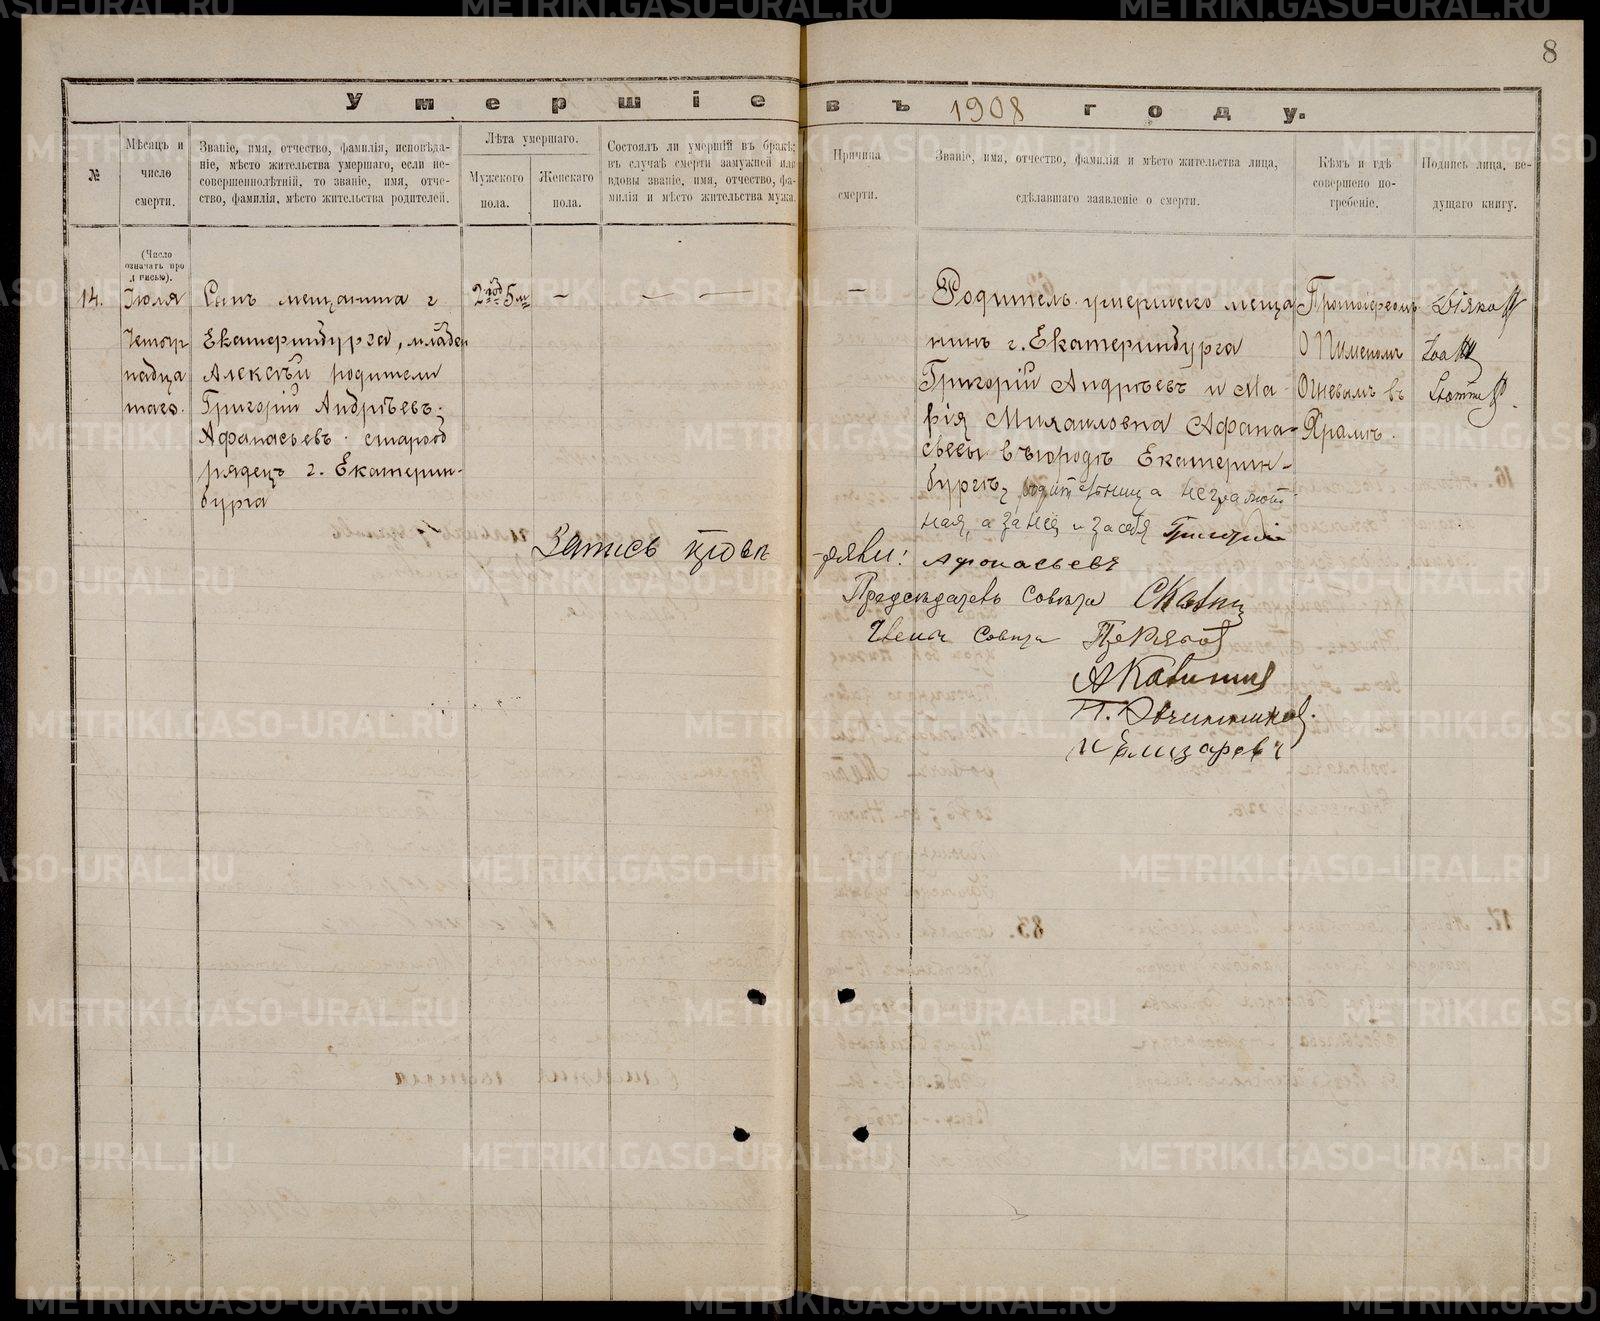 8
Умершіе въ 1908 году.
№
Мѣсяцъ и
число
смерти.
Званіе, имя, отчество, фамилія, исповѣда-
ніе, мѣсто жительства умершаго, если не-
совершеннолѣтній, то званіе, имя, отче-
ство, фамилія, мѣсто жительства родителей.
Лѣта умершаго.
Мужского
пола.
Женскаго
пола.
Состоялъ ли умершій въ бракѣ;
въ случаѣ смерти замужней или
вдовы званіе, имя, отчество, фа-
милія и мѣсто жительства мужа.
Причина
смерти.
Званіе, имя, отчество, фамилія и мѣсто жительства лица,
сдѣлавшаго заявленіе о смерти.
Кѣмъ и гдѣ
совершено по-
гребеніе.
Подпись лица, ве-
дущаго книгу.
(Число
означать про
писью).
14.
Іюля
Четыр
надца
таго.
Сынъ мещанина г
Екатеринбурга, младен
Алексѣй родители
Григорій Андрѣевъ
Афанасьевъ старооб
рядецъ г. Екатерин-
бурга
2 год 5 м
—
— —
—
Родитель умершего меща
нинъ г. Екатеринбурга
Григорій Андрѣевъ и Ма-
рія Михаиловна Афана-
сьевы в городѣ Екатерин-
бургѣ, родительница неграмот
ная, а за нея и за себя Григорій
Афонасьевъ
Протоіереомъ
О Пименомъ
Огневымъ въ
Храмѣ.
Запись провѣ
ряли:
Председатель Совѣта
Члены Совѣта
П. Овчинников.
И Елизаревъ
METRIKI.GASO-URAL.RU